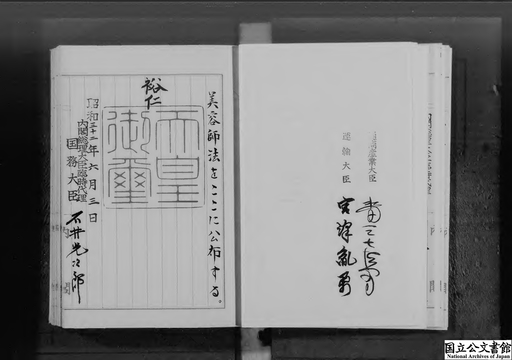 産業大臣
運輸大臣
宮澤胤勇
美容師法をここに公布する。
裕仁
天皇
御璽
昭和三十二年六月三日
内閣総理大臣臨時代理
国務大臣
石井光次郎
国立公文書館
National Archives of Japan